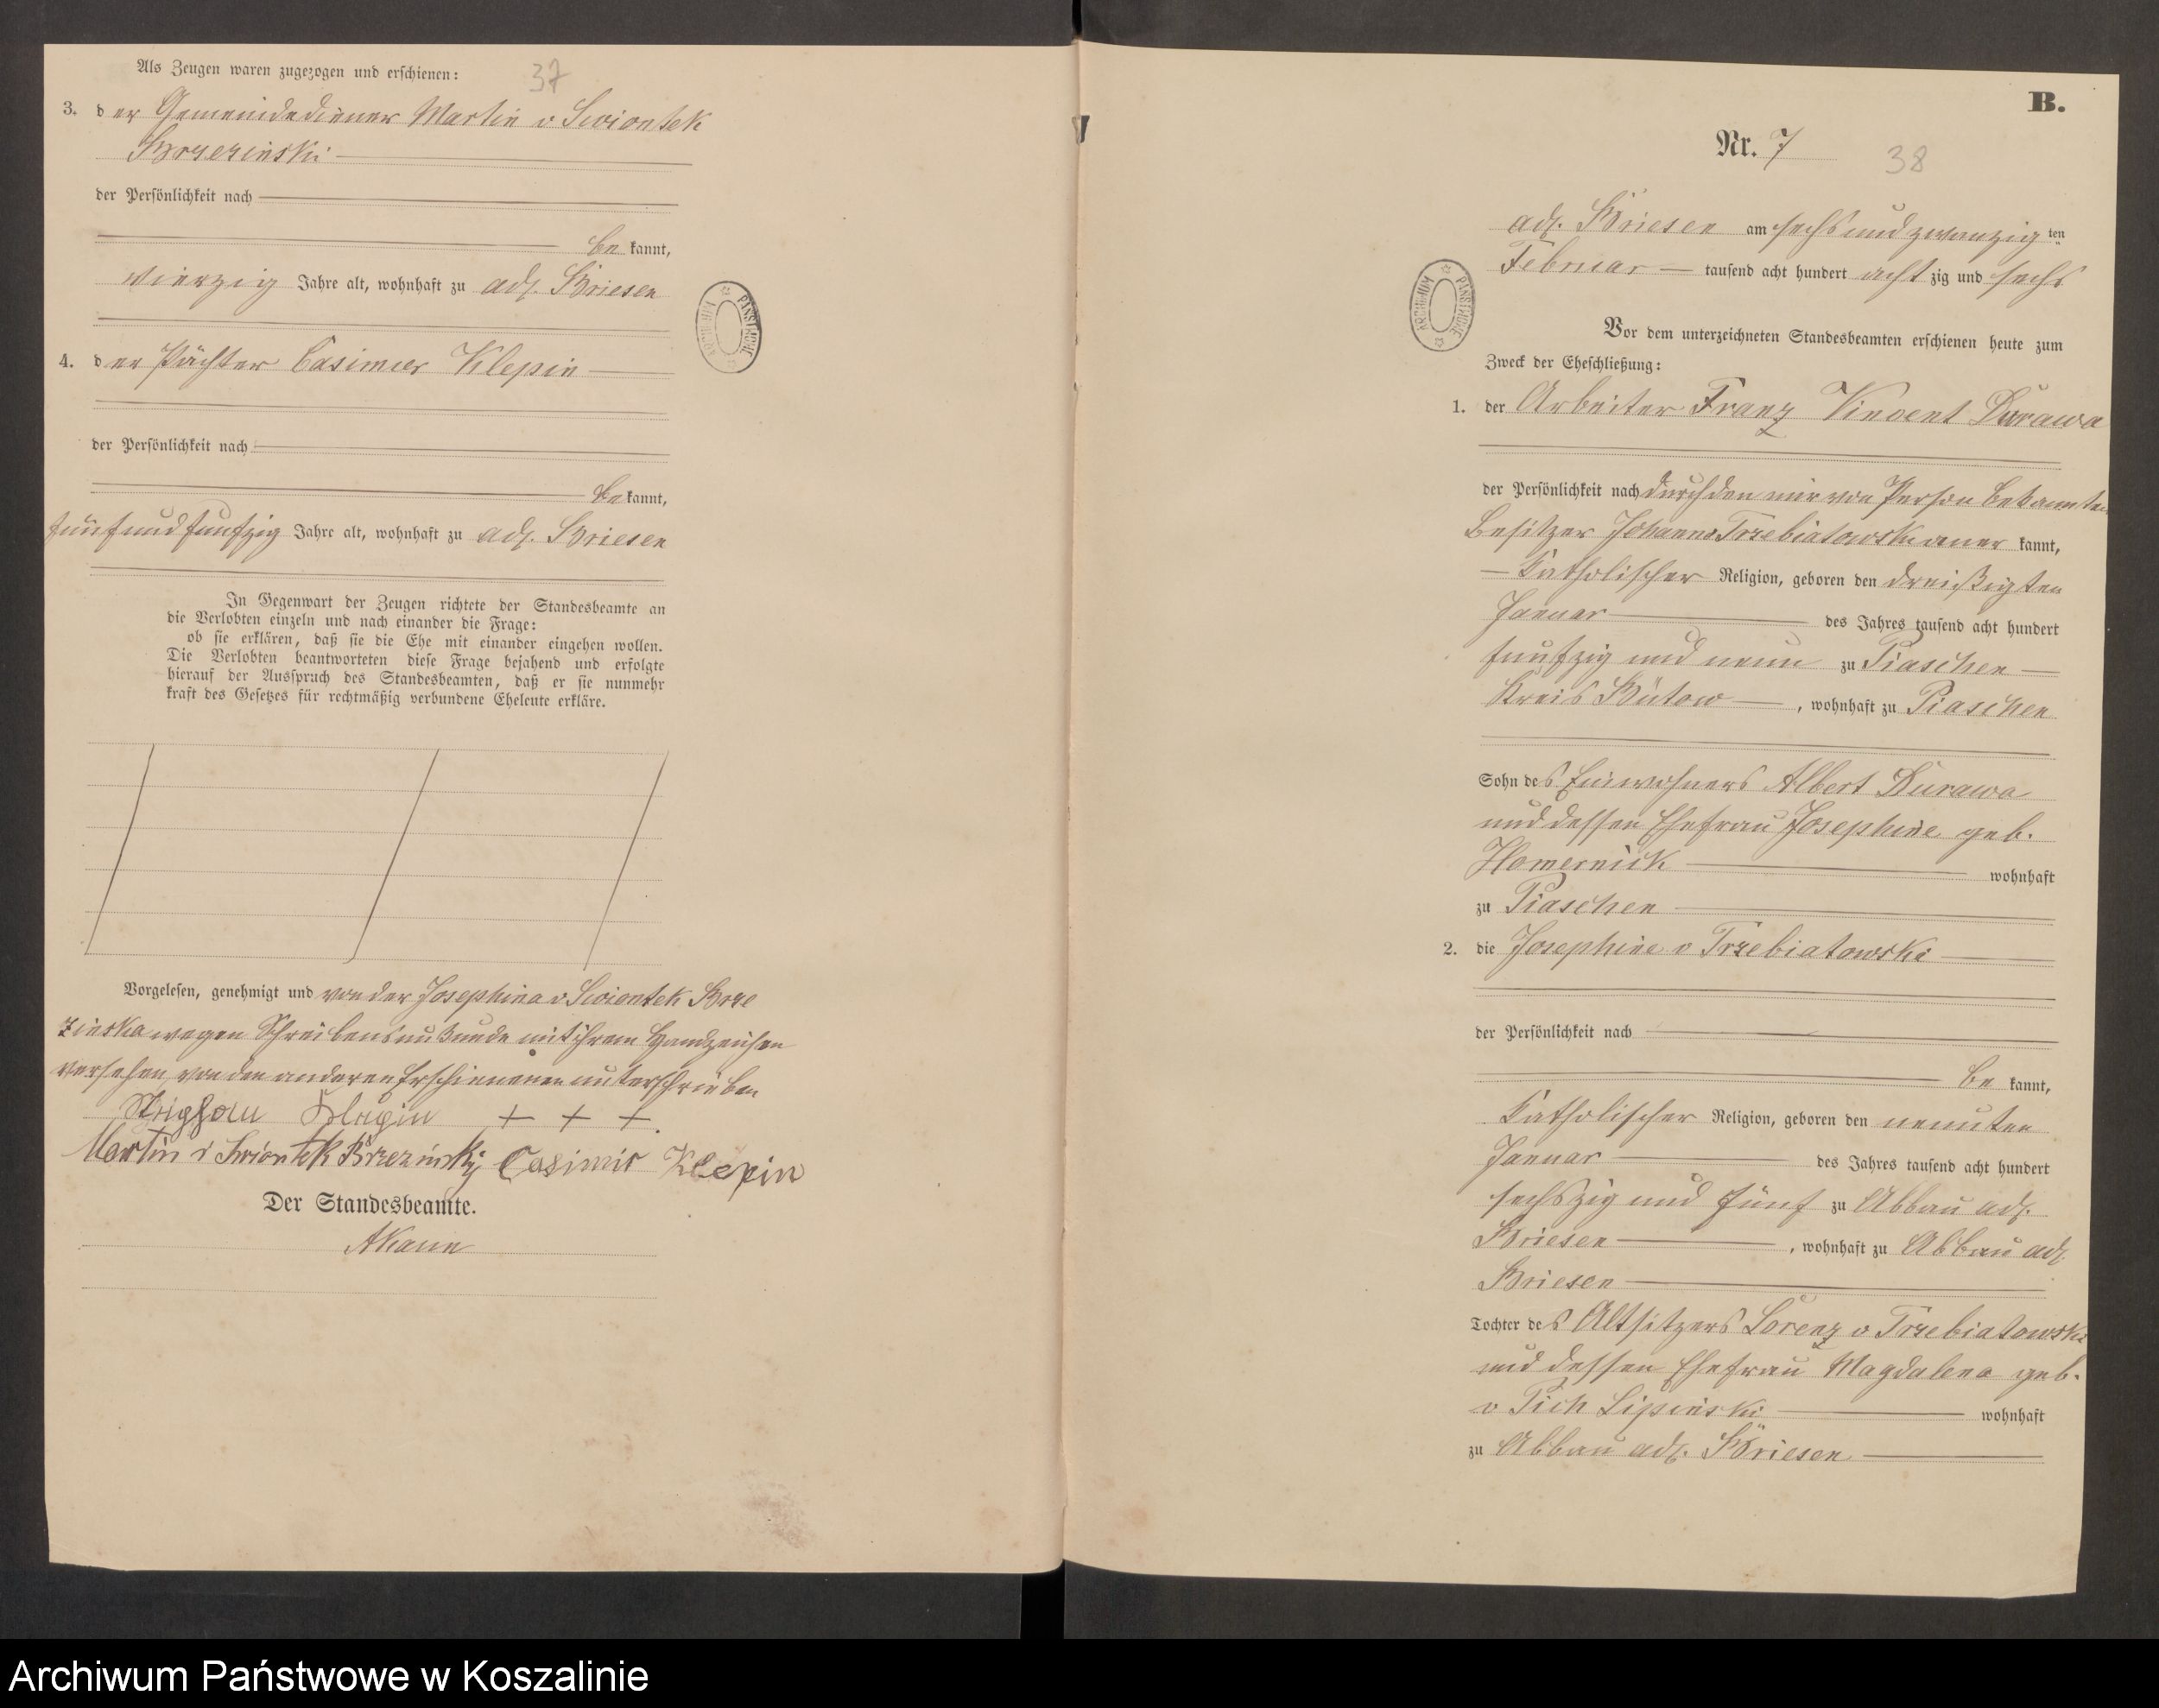 Als Zeugen waren zugezogen und erschienen:
37
3. der Gemeindediener Martin v Swiontek
Brzezinski
der Persönlichkeit nach
be kannt,
vierzig Jahre alt, wohnhaft zu adl. Briesen
4. der Pächter Casimir Klepin
der Persönlichkeit nach
be kannt,
fünf und funfzig Jahre alt, wohnhaft zu adl. Briesen
In Gegenwart der Zeugen richtete der Standesbeamte an
die Verlobten einzeln und nach einander die Frage:
ob sie erklären, daß sie die Ehe mit einander eingehen wollen.
Die Verlobten beantworteten diese Frage bejahend und erfolgte
hierauf der Ausspruch des Standesbeamten, daß er sie nunmehr
kraft des Gesetzes für rechtmäßig verbundene Eheleute erkläre.
Vorgelesen, genehmigt und von der Josephina v Swiontek Brze
zinska wegen Schreibensunkunde mit ihrem Handzeichen
versehen, von den anderen Erschienenen unterschrieben
+ + +
Martin v Swiontek Brzezinsky Casimir Klepin
Der Standesbeamte.
ARCHIWUM PAŃSTWOWE
B.
Nr. 7
38
adl. Briesen am sechs und zwanzig ten
Februar tausend acht hundert acht zig und sechs
Vor dem unterzeichneten Standesbeamten erschienen heute zum
Zweck der Eheschließung:
1. der Arbeiter Franz Vincent Durawa
der Persönlichkeit nach durch den mir von Person bekannten
Besitzer Johann Trzebiatowski aner kannt,
Katholischer Religion, geboren den dreißigten
Januar des Jahres tausend acht hundert
funfzig und neun zu Piaschen
Kreis Bütow, wohnhaft zu Piaschen
Sohn des Einwohners Albert Durawa
und dessen Ehefrau Josephine geb.
wohnhaft
zu Piaschen
2. die Josephine v Trzebiatowski
der Persönlichkeit nach
be kannt,
Katholischer Religion, geboren den neunten
Januar des Jahres tausend acht hundert
sechszig und fünf zu Abbau adl.
Briesen, wohnhaft zu Abbau adl.
Briesen
Tochter des Altsitzers Lorenz v Trzebiatowski
und dessen Ehefrau Magdalena geb.
v Pich Lipinski wohnhaft
zu Abbau adl. Briesen
ARCHIWUM PAŃSTWOWE
Archiwum Państwowe w Koszalinie